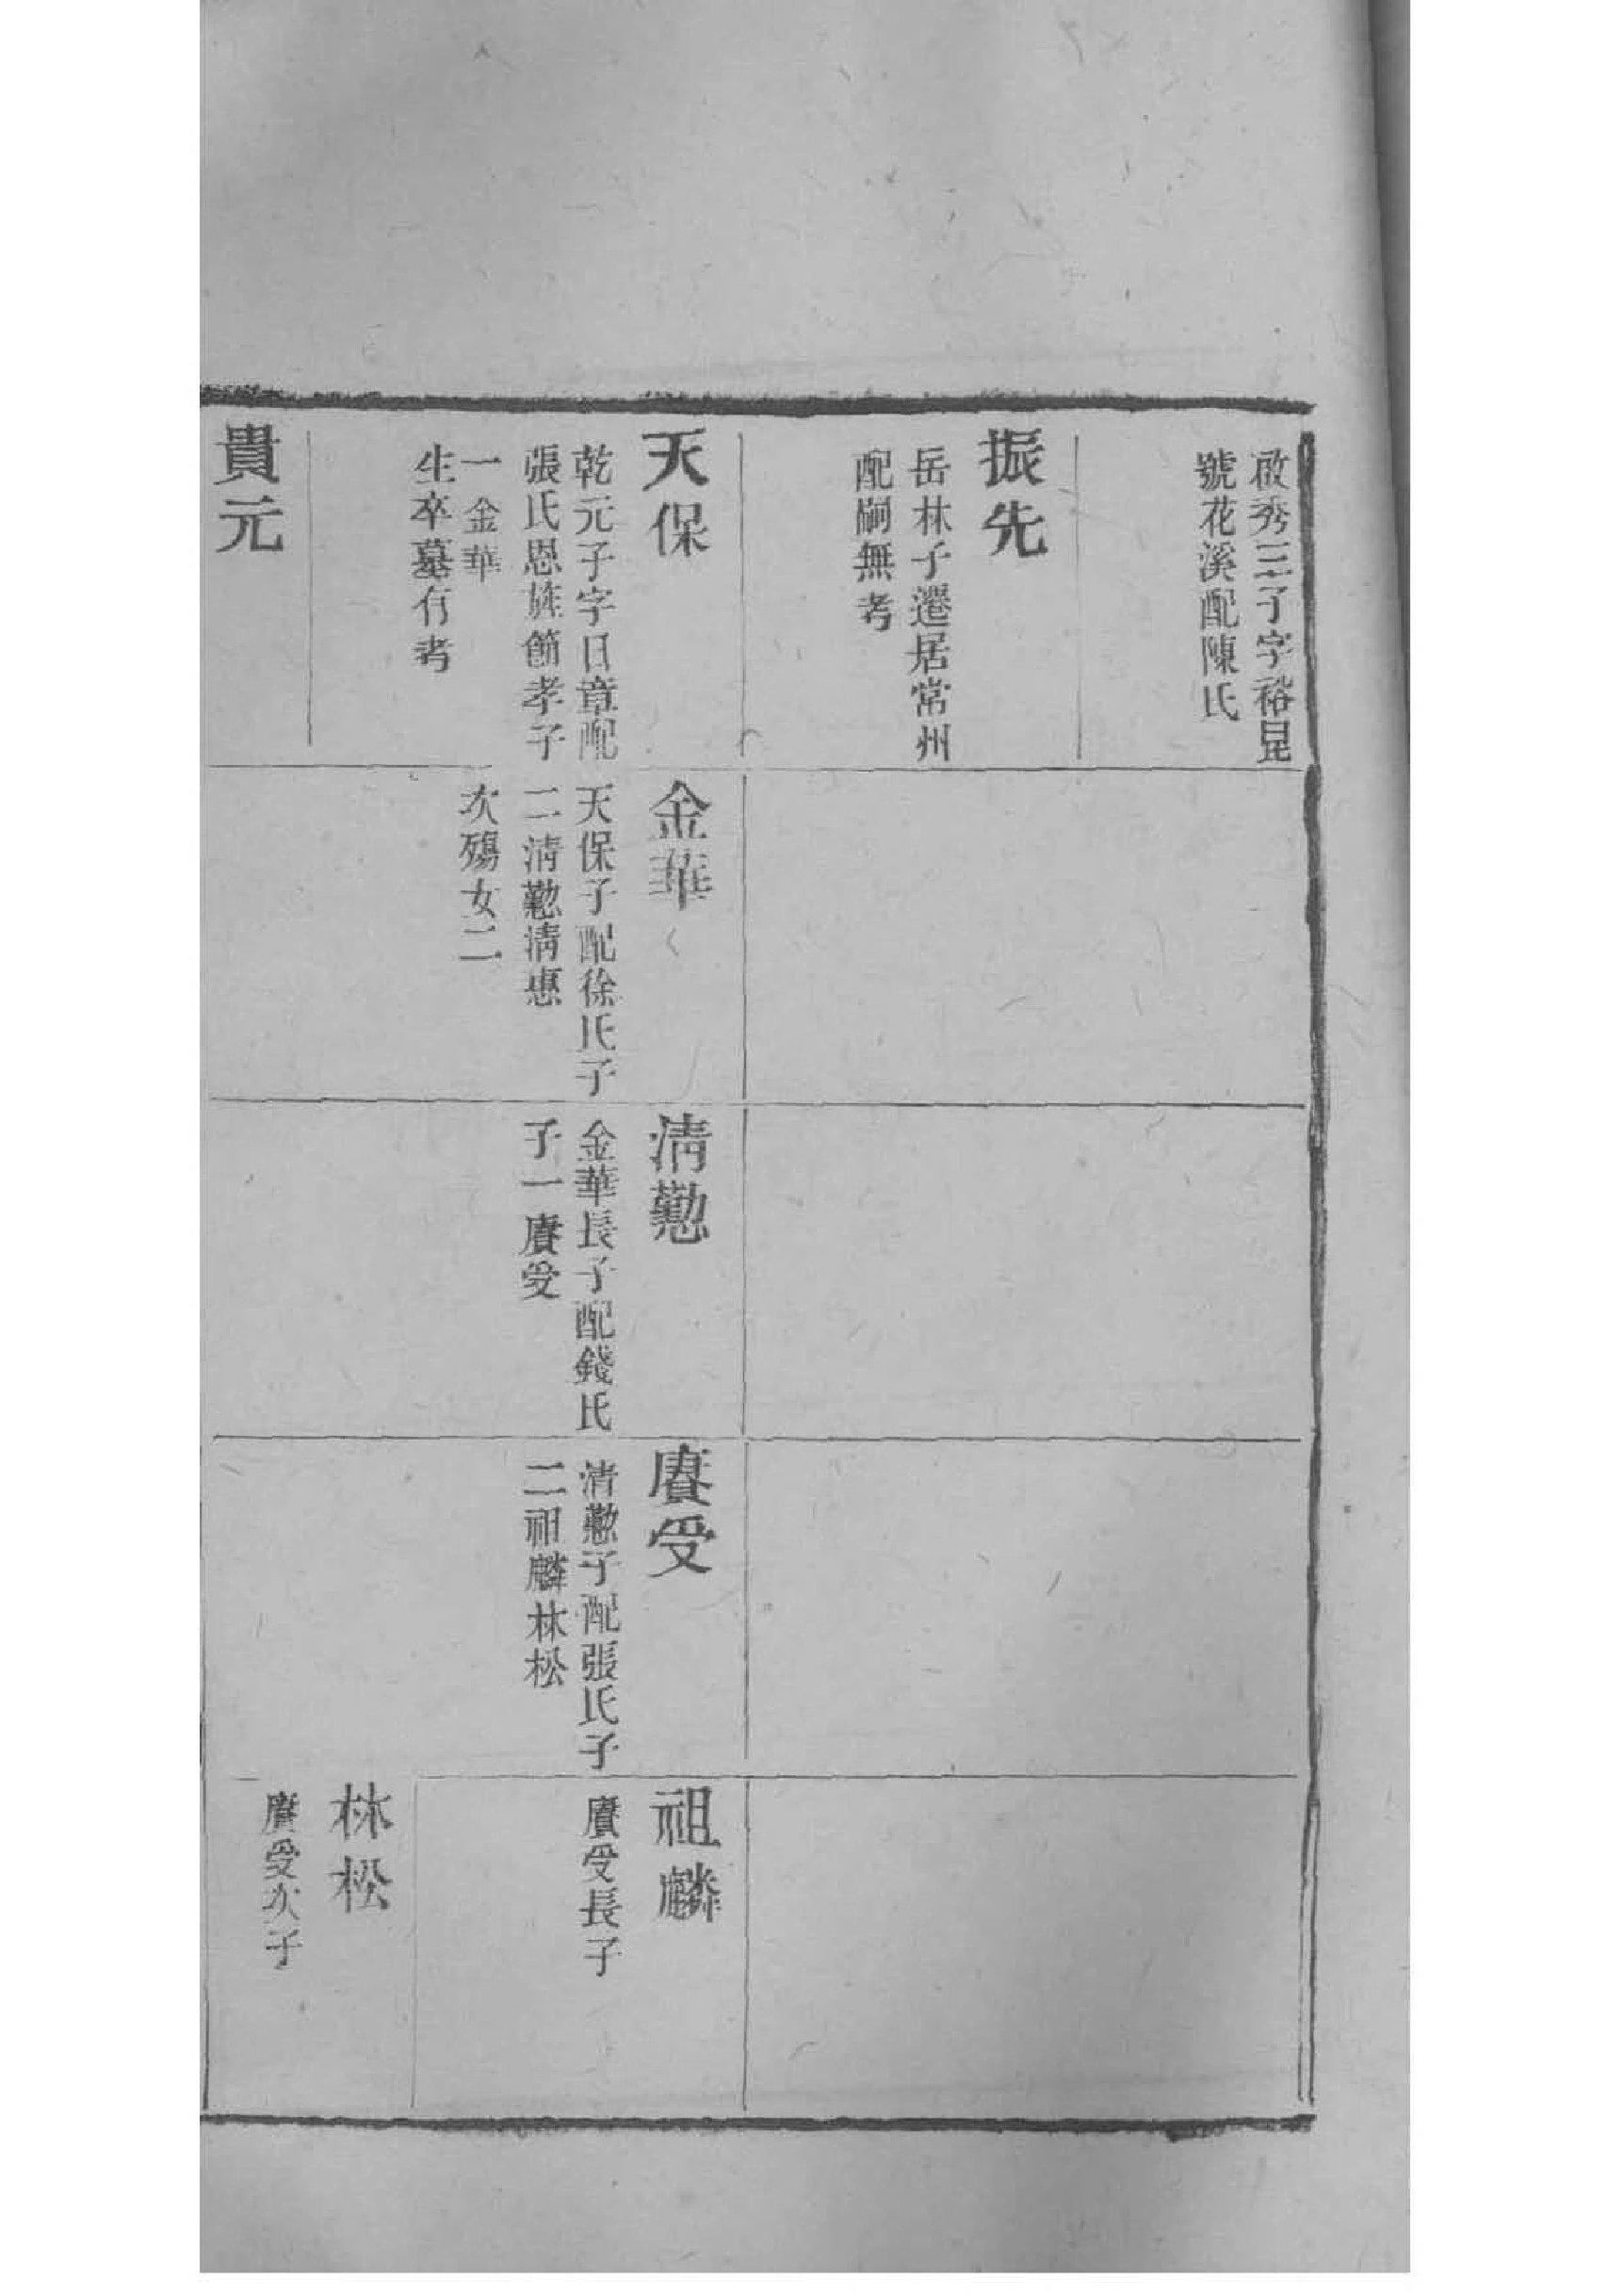 啟秀三子字裕昆
號花溪配陳氏
振先
岳林子遷居常州
配嗣無考
天保
乾元子字日章配
張氏恩旌節孝子
一金華
生卒墓有考
貴元
金華
天保子配徐氏子
二清懃清惠
次殤女二
清懃
金華長子配錢氏
子一賡受
賡受
清懃子配張氏子
二祖麟林松
祖麟
賡受長子
林松
賡受次子